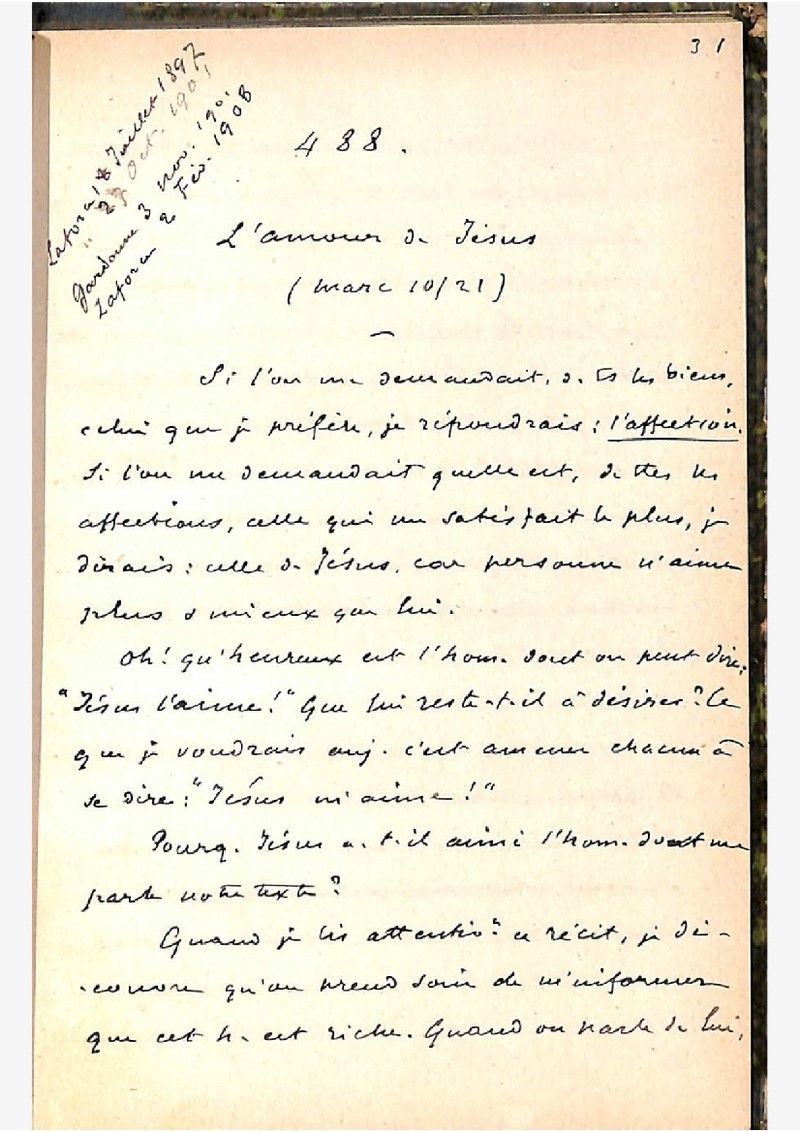 31
Laforce, 18 Juillet 1897
" 27 Oct. 1901
Gardonne 3 nov. 1901
Laforce 2 Fév. 1908
488.
L'amour de Jésus
(Marc 10/21)
Si l'on me demandait, de ts les biens,
celui que je préfère, je répondrais : l'affection.
Si l'on me demandait quelle est, de ttes les
affections, celle qui me satisfait le plus, je
dirais : celle de Jésus, car personne n'aime
plus & mieux que lui.
Oh! qu'heureux est l'hom. dont on peut dire:
"Jésus l'aime!" Que lui reste-t-il à désirer? Ce
que je voudrais auj. c'est amener chacun à
se dire : "Jésus m'aime!"
Pourq. Jésus a-t-il aimé l'hom. dont me
parle notre texte?
Quand je lis attentivt ce récit, je dé-
-couvre qu'on prend soin de m'informer
que cet h. est riche. Quand on parle de lui,